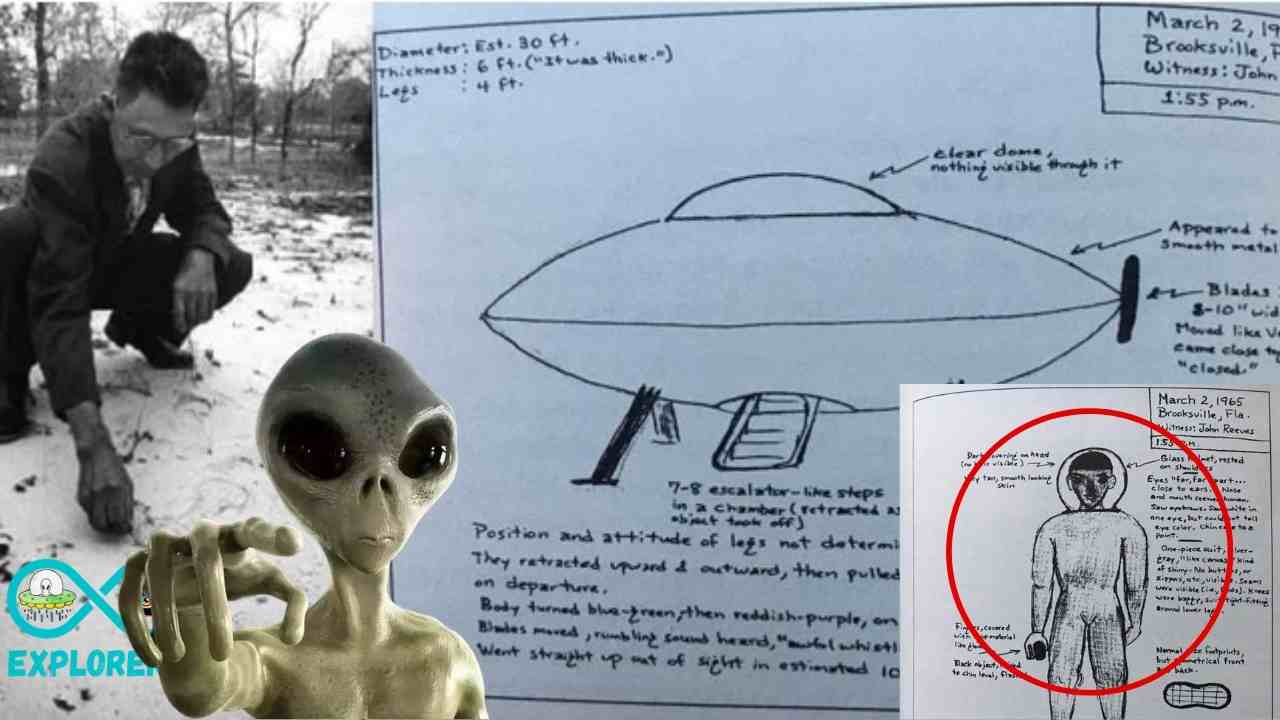 Diameter: Est. 30 ft.
Thickness: 6 ft. ("It was thick.")
Legs : 4 ft.
March 2, 19
Brooksville, F
Witness: John
1:55 p.m.
clear dome,
nothing visible through it
Appeared to
smooth metal
Blades
8-10" wid
Moved like V
came close t
"closed."
7-8 escalator-like steps
in a chamber (retracted as
object took off)
Position and attitude of legs not determi
They retracted upward & outward, then pulled
on departure.
Body turned blue-green, then reddish-purple, on
Blades moved, rumbling sound heard, "awful whistl
Went straight up out of sight in estimated 10
March 2, 1965
Brooksville, Fla.
Witness: John Reeves
1:55 p.m.
Dark covering on head
(no visible)
Very tan, smooth looking
skin
Glass helmet, rested
on shoulders
Eyes "far, far apart...
close to ears. Nose
and mouth seemed human.
Saw eyebrows. Saw white in
one eye, but could not tell
eye color. Chin came to a
point.
One-piece suit, silver-
gray, "like canvas" kind
of shiny. No buttons, or
zippers, etc., visible. Seams
were visible
were
around lower leg
Fingers, covered
with material
like
Black object, raised
to chin level, flas
Normal footprints,
but symmetrical front
back.
EXPLORER